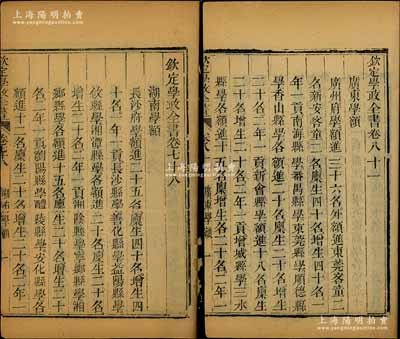 上海陽明拍賣
www.yangmingauction.com
欽定學政全書卷八十一
廣東學額
廣州府學額進三十六名外額進東莞客童二
名新安客童二名廩生四十名增生四十名一
年一貢南海縣學番禺縣學東莞縣學順德縣
學香山縣學各額進二十名廩生二十名增生
二十名二年一貢新會縣學額進十八名廩生
二十名增生二十名二年一貢增城縣學三水
縣學各額進十名廩生二十名增生二十名二年一
欽定學政全書卷十八
湖南學額
長沙府學額進二十五名廩生四十名增生四
十名一年一貢長沙縣學善化縣學益陽縣學
攸縣學湘潭縣學各額進二十名廩生二十名
增生二十名二年一貢湘陰縣學寧鄉縣學湘
鄉縣學各額進十五名廩生二十名增生二十
名二年一貢瀏陽縣學醴陵縣學安化縣學各
額進十二名廩生二十名增生二十名二年一
湖南學額